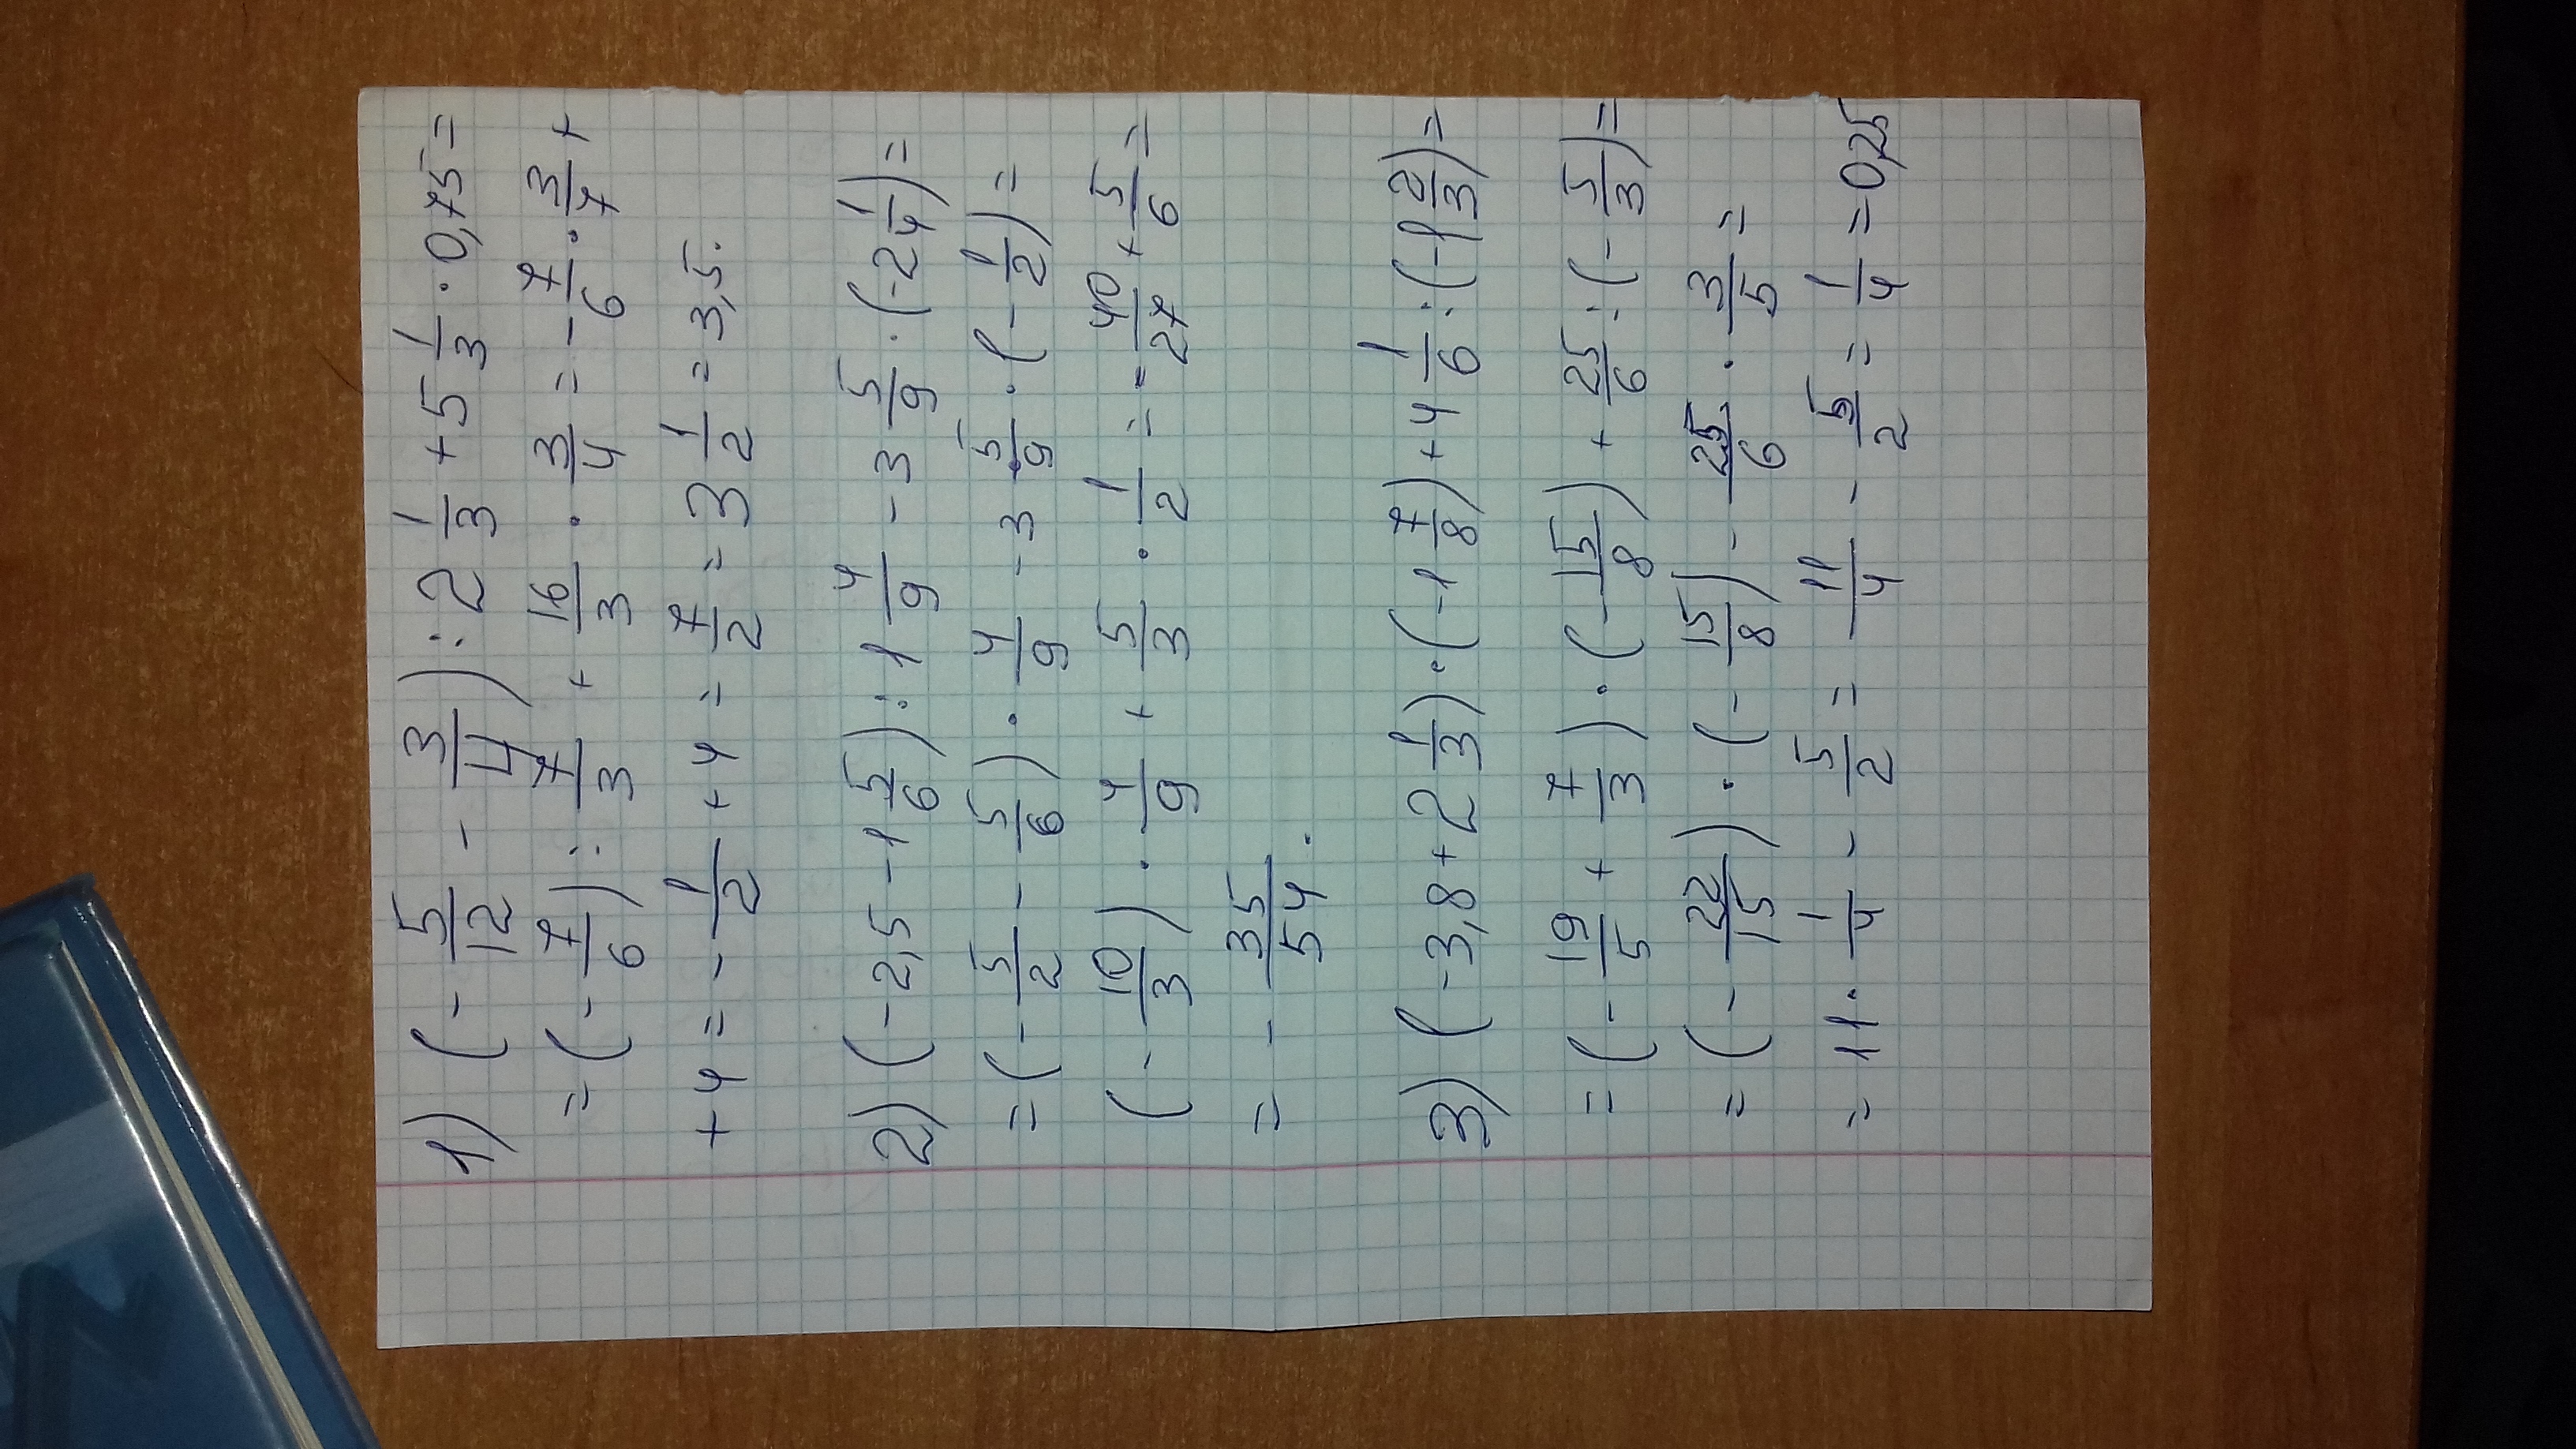 1) (- 5/12 - 3/4) : 2 1/3 + 5 1/3 · 0,75 =
= (- 7/6) : 7/3 + 16/3 · 3/4 = - 7/6 · 3/7 +
+ 4 = - 1/2 + 4 = 7/2 = 3 1/2 = 3,5.
2) (-2,5 - 1 5/6) : 1 4/9 - 3 5/9 · (-2 1/4) =
= (- 5/2 - 5/6) · 4/9 - 3 5/9 · (- 1/2) =
(- 10/3) · 4/9 + 5/3 · 1/2 = - 40/27 + 5/6 =
= - 35/54.
3) (-3,8 + 2 1/3) · (-1 7/8) + 4 1/6 : (-1 2/3) =
= (- 19/5 + 7/3) · (- 15/8) + 25/6 : (- 5/3) =
= (- 22/15) · (- 15/8) - 25/6 · 3/5 =
= 11 · 1/4 - 5/2 = 11/4 - 5/2 = 1/4 = 0,25